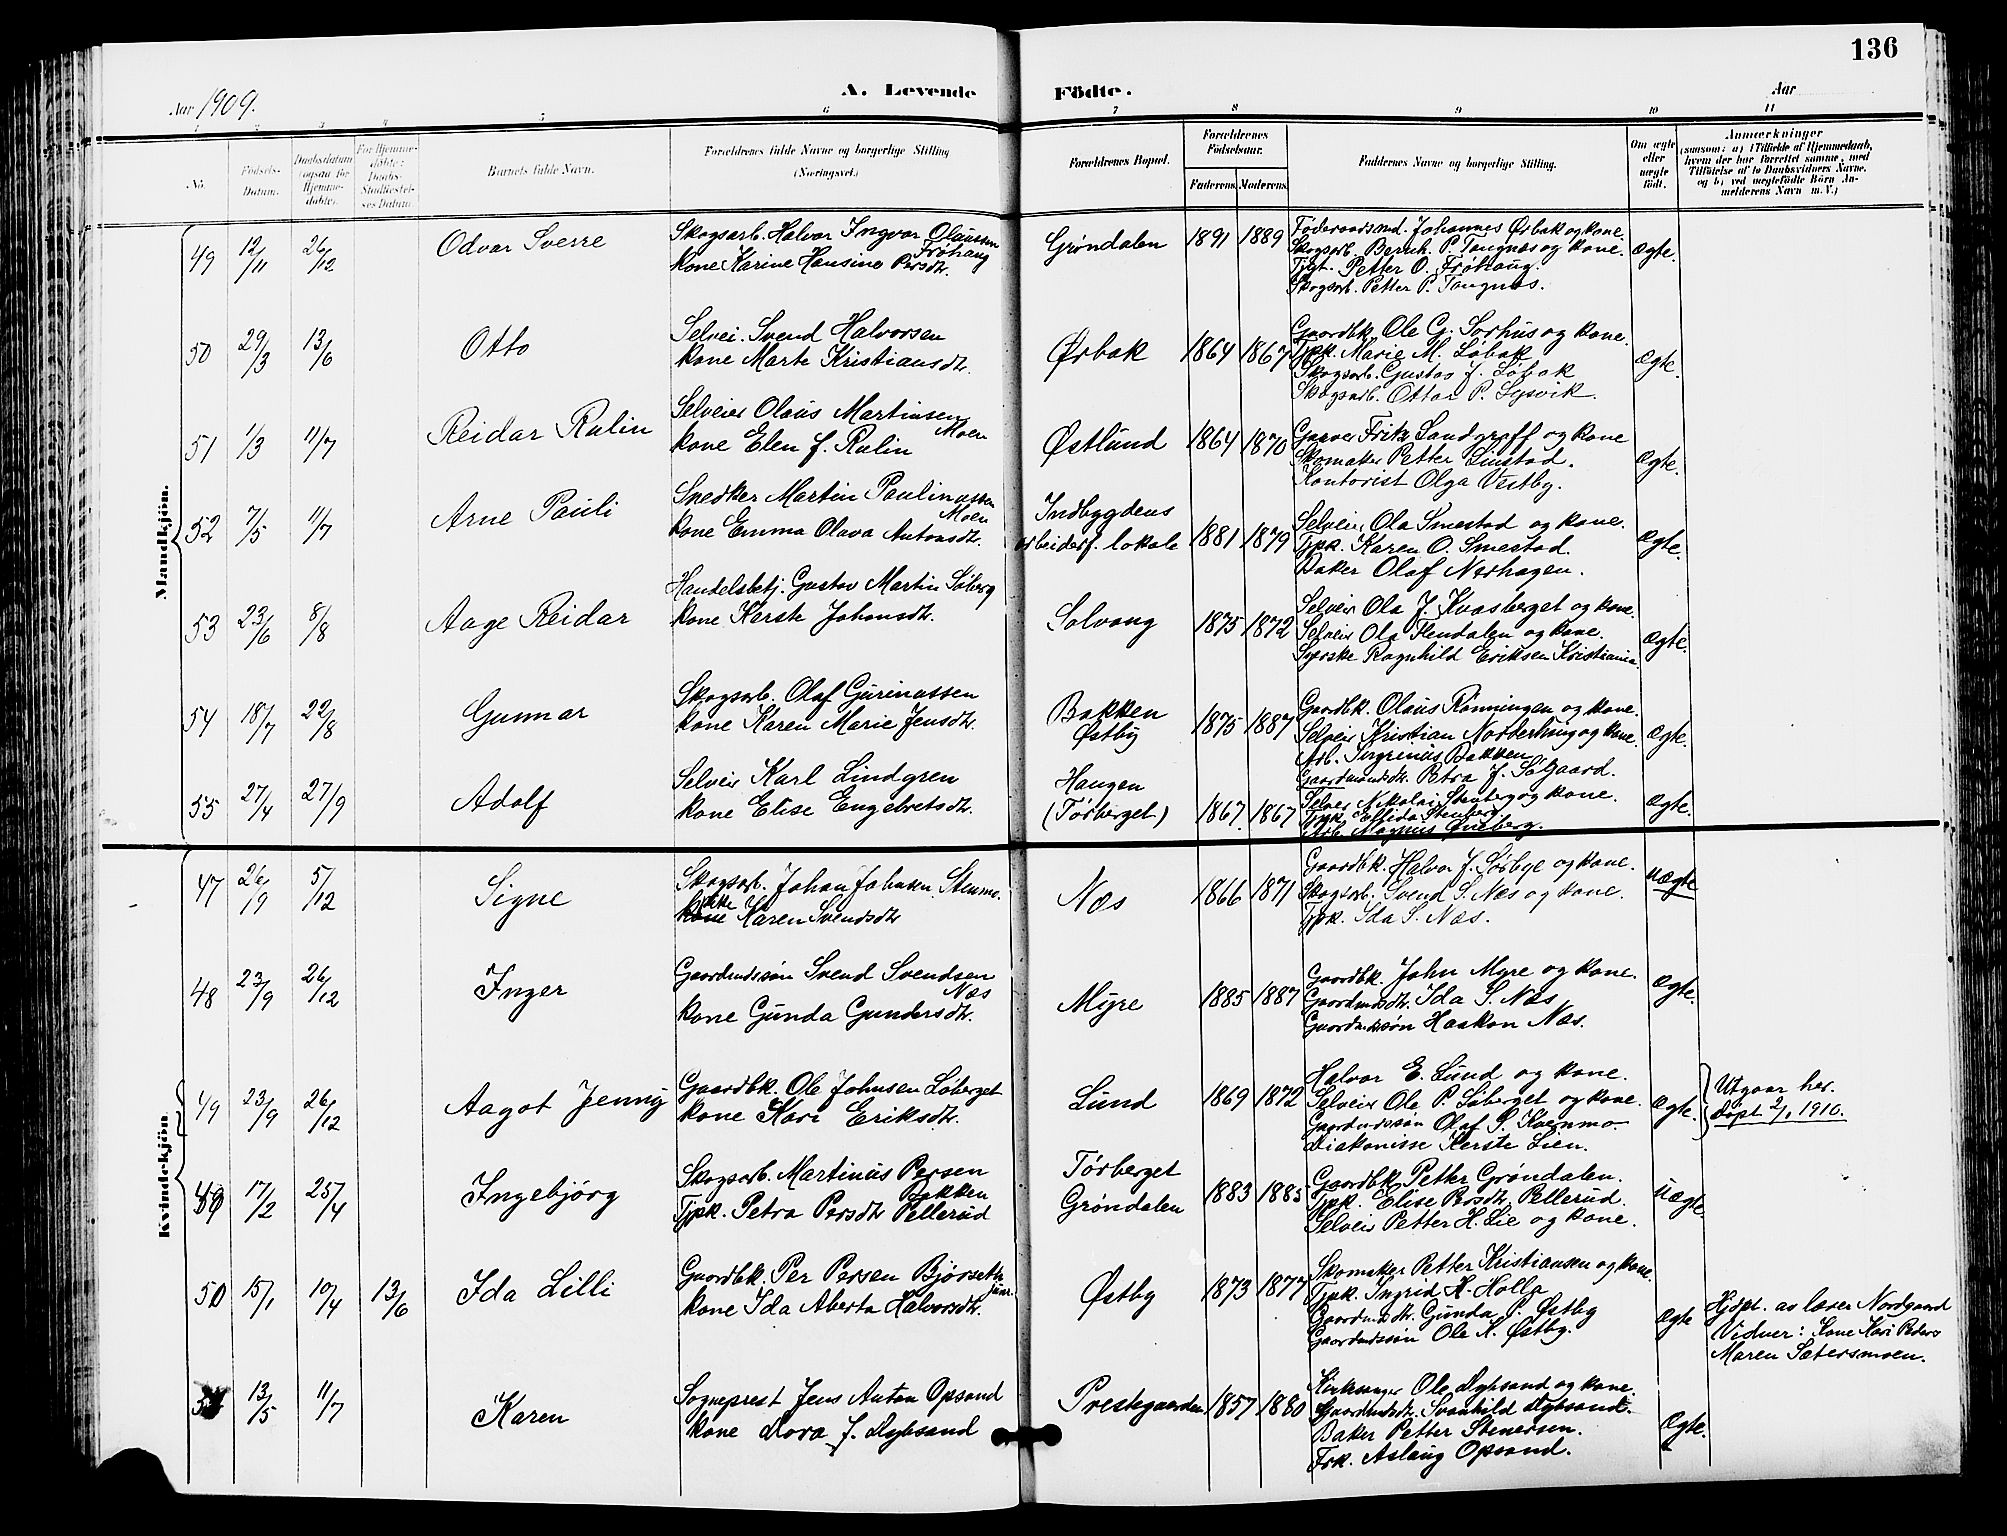 136
Aar 1909.
A. Levende Födte.
Aar
1 2 3 4 5 6 7 8 9 10 11
No.
Födsels-Datum.
Daabsdatum (ogsaa for Hjemme-döbte).
For Hjemme-döbte: Daabs-Stadfæstel-ses Datum.
Barnets fulde Navn.
Forældrenes fulde Navne og borgerlige Stilling
(Næringsvei.)
Forældrenes Bopæl.
Forældrenes Födselsaar.
Faderens. Moderens.
Faddernes Navne og borgerlige Stilling.
Om ægte eller uægte födt.
Anmærkninger
(saasom: a) i Tilfælde af Hjemmedaab,
hvem der har forrettet samme, med
Tilföielse af to Daabsvidners Navne,
og b) ved uægtefödte Börn An-
melderens Navn m. V.)
Mandkjön.
49 12/11 26/12 Odvar Sverre
Skogsarb. Halvor Ingvar Olaussen Fröhaug
kone Karine Hansine Persdtr.
Grøndalen 1891 1889
Föderaadsmd. Johannes Ørbak og kone.
Skogsarb. Bernh. P. Tangnæs og kone.
Tjgt. Petter O. Fröhaug.
Skogsarb. Petter P. Tangnæs.
Ægte.
50 29/3 13/6 Otto
Selvei. Svend Halvorsen
kone Marte Kristiansdtr.
Ørbak 1864 1867
Gaardbk. Ole G. Sørhus og kone.
Tjpk. Marie M. Løbak
Skogsarb. Gustav J. Löbak
Skogsarb. Ottar P. Lysvik.
Ægte.
51 1/3 11/7 Reidar Rulin
Selveier Olaus Martinsen Moen
kone Elen J. Rulin
Østlund 1864 1870
Garver Fritz Sandgreff og kone
Skomaker Petter Linstad.
Kontorist Olga Vestby.
Ægte.
52 7/5 11/7 Arne Pauli
Snedker Martin Paulinussen Moen
kone Emma Olava Antonsdtr.
Indbygdens
arbeiderf. lokale 1881 1879
Selveier Ola Smestad og kone.
Tjpk. Karen O. Smestad.
Baker Olaf Nerhagen.
Ægte.
53 23/6 8/8 Aage Reidar
Handelsbetj. Gustav Martin Söberg
kone Kerste Johansdtr.
Solvang 1875 1872
Selveier Ola J. Kvasberget og kone.
Selveier Ola Flendalen og kone.
Syerske Ragnhild Eriksen Kristiania.
Ægte.
54 18/7 22/8 Gunnar
Skogsarb. Olaf Gurinassen
kone Karen Marie Jensdtr.
Bakken
Østby 1875 1887
Gaardbk. Olaus Rönningen og kone.
Selveier Kristian Norderhaug og kone.
Arb. Bakken
Gaardmandsdtr. Petra J. Sølgaard.
Ægte.
55 27/4 27/9 Adolf
Selveier Karl Lindgren
kone Elise Engebretsdtr.
Haugen
(Törberget) 1867. 1867
Selveier Nikolai Stenberg og kone.
Tjpk. Elfida Stenberg
Arb. Magnus Øieberg.
Ægte.
Kvindekjön
47 26/9 5/12 Signe
Skogsarb. Johan Johnsen Stenmo.
ikke
kone Karen Svendsdtr
Næs 1866 1871
Gaardbk. Halvor J. Sörbye og kone.
Skogsarb. Svend S. Næs og kone.
Tjpk. Ida S. Næs.
Uægte
48 23/9 26/12 Inger
Gaardmdssön Svend Svendsen Næs
kone Gunda Gundersdtr.
Myre 1885 1887
Gaardbk. John Myre og kone.
Gaardmdsdtr. Ida S. Næs
Gaardmdssön Haakon Næs.
Ægte.
49 23/9 26/12 Aagot Jenny
Gaardbk. Ole Johnsen Löberget
kone Kari Eriksdtr.
Lund 1869 1872
Halvor E. Lund og kone.
Selveier Ole P. Söberget og kone.
Gaardmdssön Olaf S. Kvernmo
Diakonisse Kerste Lien.
Ægte.
Utgaar her.
döpt 2/1 1910.
49 17/2 25/4 Ingebjörg
Skogsarb. Martinus Persen Bakken
Tjpk. Petra Persdtr Pellerud
Törberget
Grøndalen 1883 1885
Gaardbk Petter Gröndalen.
Tjpk. Elise Persdtr. Pellerud.
Selveier Petter H. Lie og kone.
Uægte.
50 15/1 10/4 13/6 Ida Lilli
Gaardbk. Per Persen Bjørseth junr.
kone Ida Aberta Halvorsdtr.
Østby 1873 1877
Skomaker Petter Kristiansen og kone.
Tjpk. Ingrid H. Holla
Gaardmdsdtr. Gunda P. Østby
Gaardmdssön Ole N. Østby.
Ægte
Hjdpt. av lærer Nordgaard
Vidner: Kone Kari Peders
Maren Sætersmoen.
13/5 11/7 Karen
Sogneprest Jens Anton Opsand
kone Dora J. Nybsand
Prestegaarden 1857 1880
Kirkesanger Ole Nybsand og kone.
Gaardmdsdtr. Svanhild Nybsand.
Baker Petter Stenersen.
Frk. Aslaug Opsand.
Ægte.